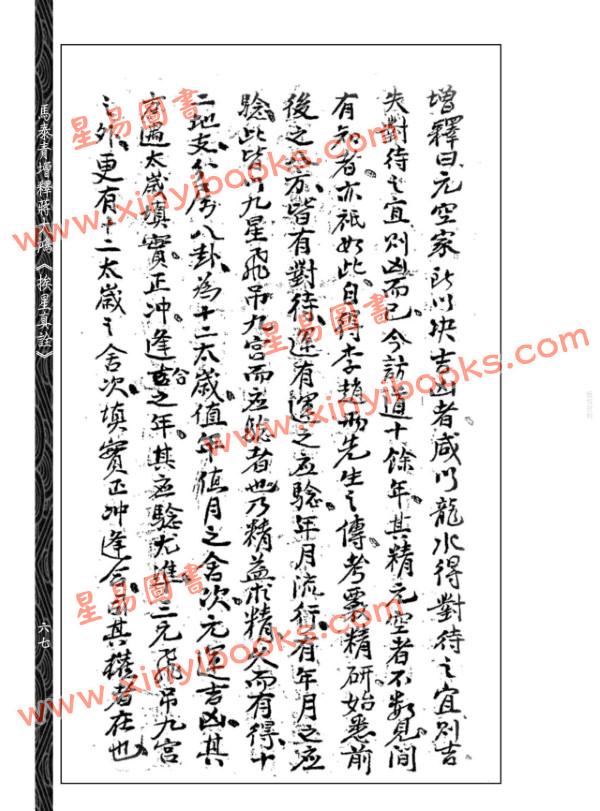 增釋曰元空家所以決吉凶者咸以龍水得對待之宜則吉
失對待之宜則凶而已今訪道十餘年其精元空者不數見間
有知者亦祇如此自得李趙兩先生之傳考覈精研始悉前
後之應亦皆有對待運有運之應驗年月流行有年月之應
驗此皆以九星飛吊九宮而應驗者也乃精益求精久而有得十
二地支分居八卦為十二太歲值年値月之舍次元運吉凶其
方遇太歲填實正冲逢合之年其應驗尤準三元飛吊九宮
之外更有十二太歲之舍次填實正冲逢合司其權者在也
馬泰青增釋蔣大鴻《挨星真詮》
六七
星易圖書
www.xinyibooks.com
星易圖書
www.xinyibooks.com
星易圖書
www.xinyibooks.com